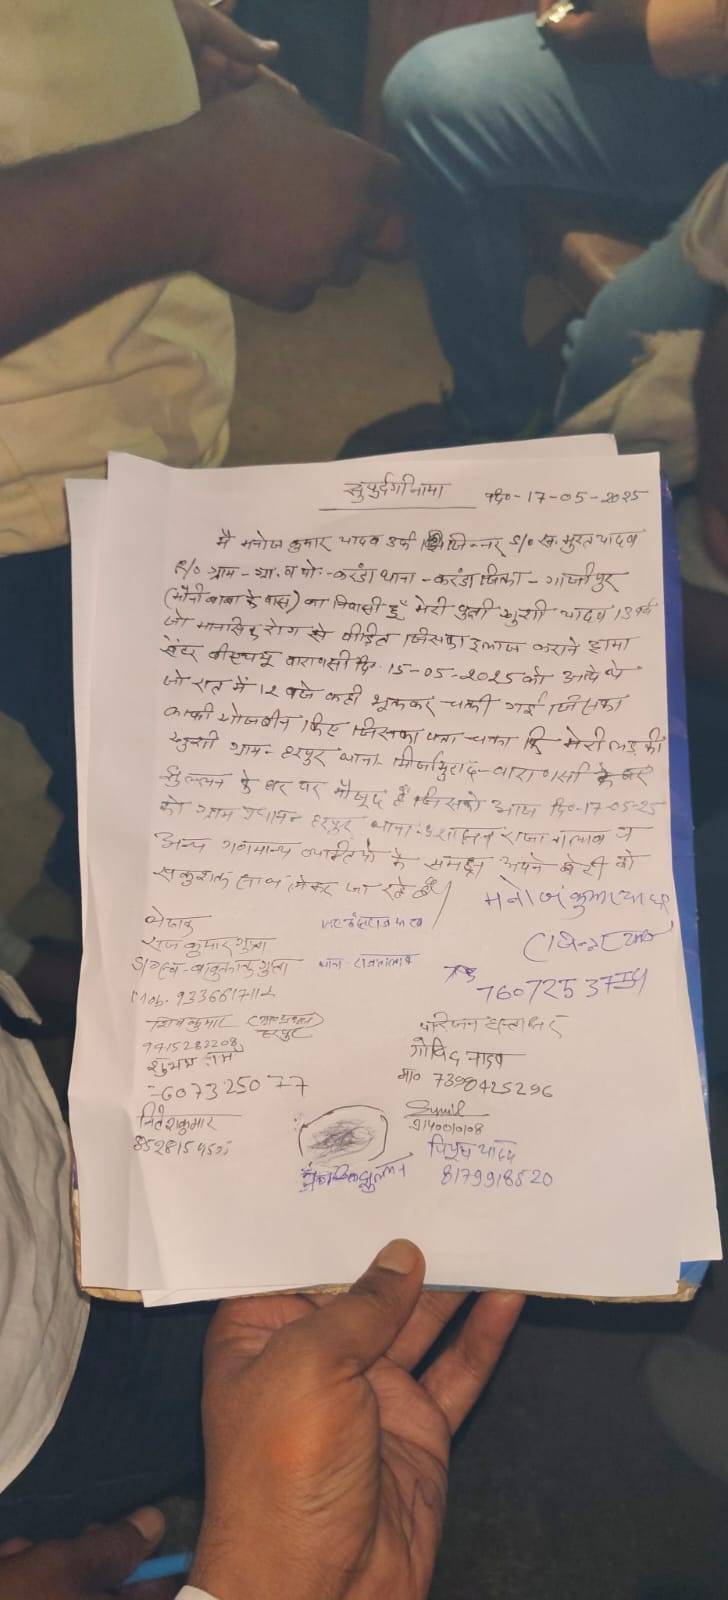 सुपुर्दगीनामा
दि०-17-05-2025
मै मनोज कुमार यादव उर्फ जिन्नर S/० स्व. मुरत यादव
R/० ग्राम - ग्रा. व पो:- करंडा थाना - करंडा जिला - गाजीपुर
(मौनी बाबा के पास) का निवासी हूँ मेरी पुत्री खुशी यादव 13 वर्ष
जो मानसिक रोग से पीड़ित जिसका इलाज कराने ट्रामा
सेंटर बीएचयू वाराणसी दि. 15-05-2025 को आये थे
जो रात में 12 बजे कही भूलकर चली गई जिसका
काफी खोजबीन किए जिसका पता चला कि मेरी लड़की
खुशी ग्राम - हरपुर थाना - मिर्जामुराद - वाराणसी के
के घर पर मौजूद है जिसको आज दि०-17-05-25
को ग्राम प्रधान हरपुर थाना राजातालाब व
अन्य गणमान्य व्यक्तियो के समक्ष अपने बेटी को
सकुशल साथ लेकर जा रहे है।
मनोज कुमार यादव
760725 37
लेखक
राज कुमार गुप्ता
S/० स्व - बाबुलाल गुप्ता
थाना - राजातालाब
Mob.
शिव कुमार (ग्राम प्रधान)
हरपुर
9415282208
शुभम
607325077
नितेश कुमार
परिजन हस्ताक्षर
गोविंद यादव
मो० 7398425296
Sunil
पियूष यादव
8179918520